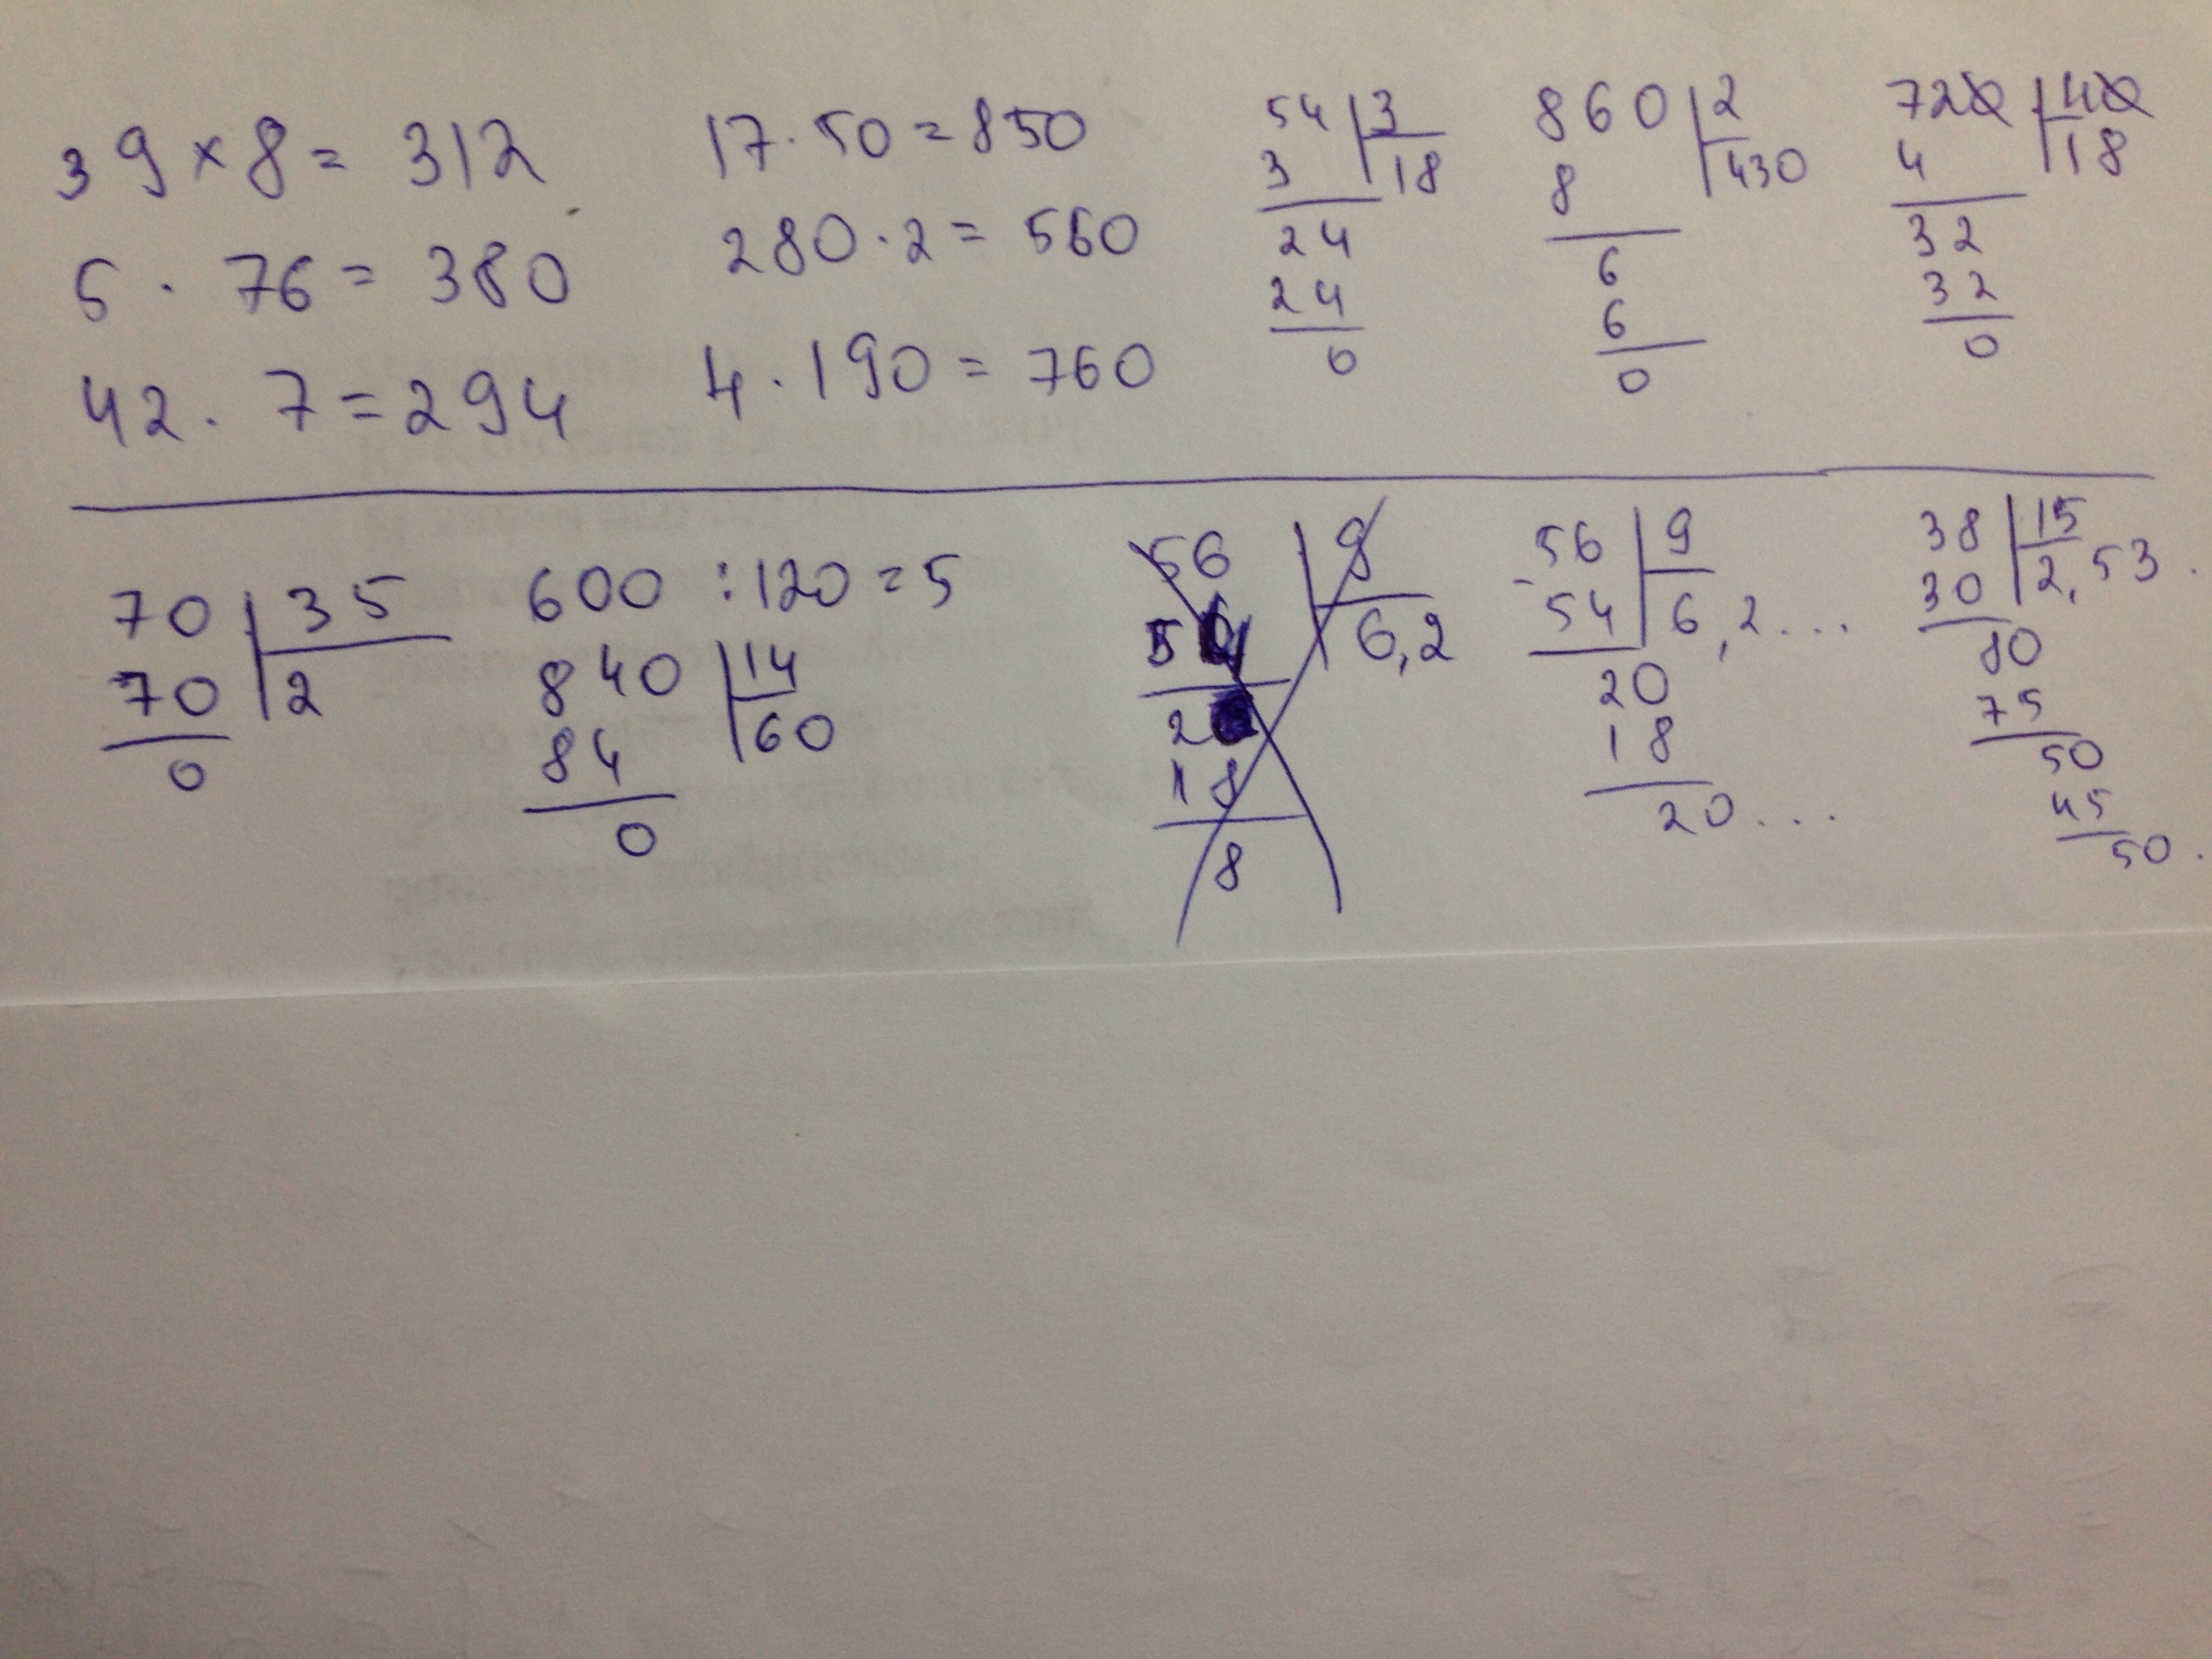 39 × 8 = 312
5 · 76 = 380
42 · 7 = 294
17 · 50 = 850
280 · 2 = 560
4 · 190 = 760
54 | 3
3 | 18
24
24
0
860 | 2
8 | 430
6
6
0
720 | 40
4 | 18
32
32
0
70 | 35
70 | 2
0
600 : 120 = 5
840 | 14
84 | 60
0
56 | 9
54 | 6,2
2
18
8
- 56 | 9
54 | 6,2...
20
18
20...
38 | 15
30 | 2,53.
80
75
50
45
50.